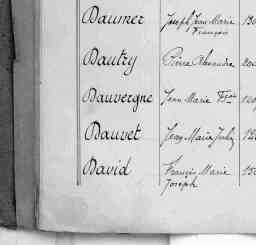 Daumer Joseph Jean Marie
François
Dautry Pierre Alexandre
Dauvergne Jean Marie Fçois
Dauvet Jean Marie
David Francis Marie
Joseph